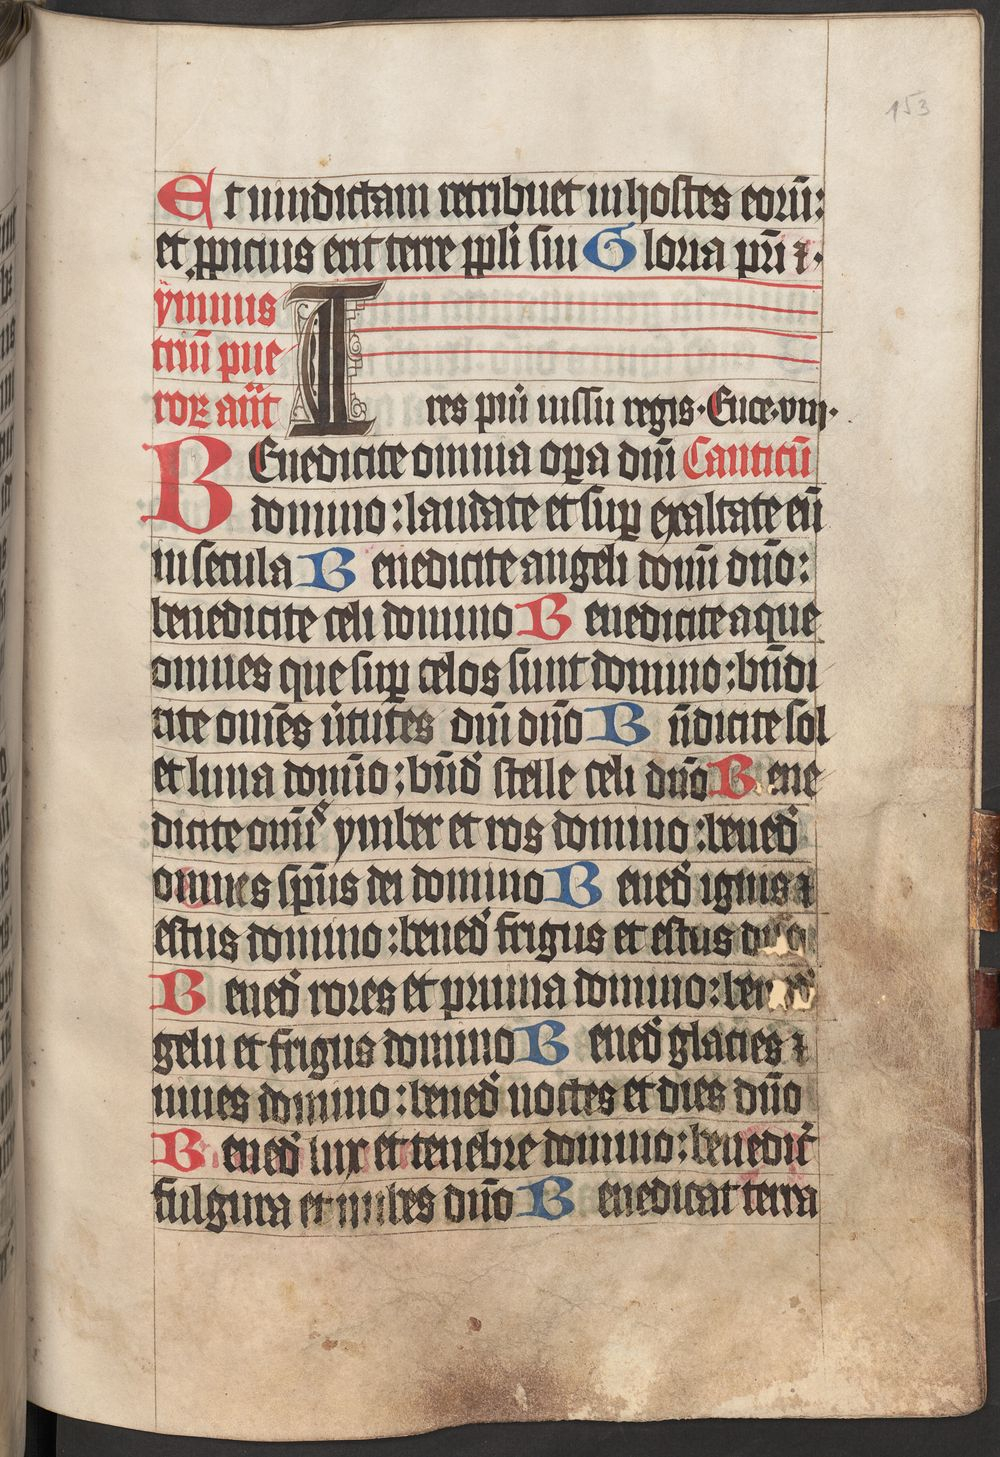 153
Et uindictam retribuet in hostes eorū:
et ꝓpicius erit terre ppl̄i sui Gloria pr̄i ⁊.
ymnus
triū pue
roꝝ an̄t
Tres pūi iussu regis. Euce. viii.
Benedicite omnia oꝑa dn̄i Canticū
domino : laudate et suꝑ exaltate eū
in secula Benedicite angeli domī dn̄o :
benedicite celi domino Benedicite aque
omnes que suꝑ celos sunt domino : bn̄di
cite om̄es ūtutes dn̄i dn̄o Bn̄dicite sol
et luna domīo : bn̄d̄ stelle celi dn̄o Bene
dicite omīs ymber et ros domino : bened̄
omnes sp̄us dei domino Bened̄ ignis ⁊
estus domino : bened̄ frigus et estus dn̄o
Bened̄ rores et pruina domino : bened̄
gelu et frigus domino Bened̄ glacies ⁊
niues domino : bened̄ noctes et dies dn̄o
Bened̄ lux et tenebre domino : benedic̄
fulgura et nubes dn̄o Benedicat terra